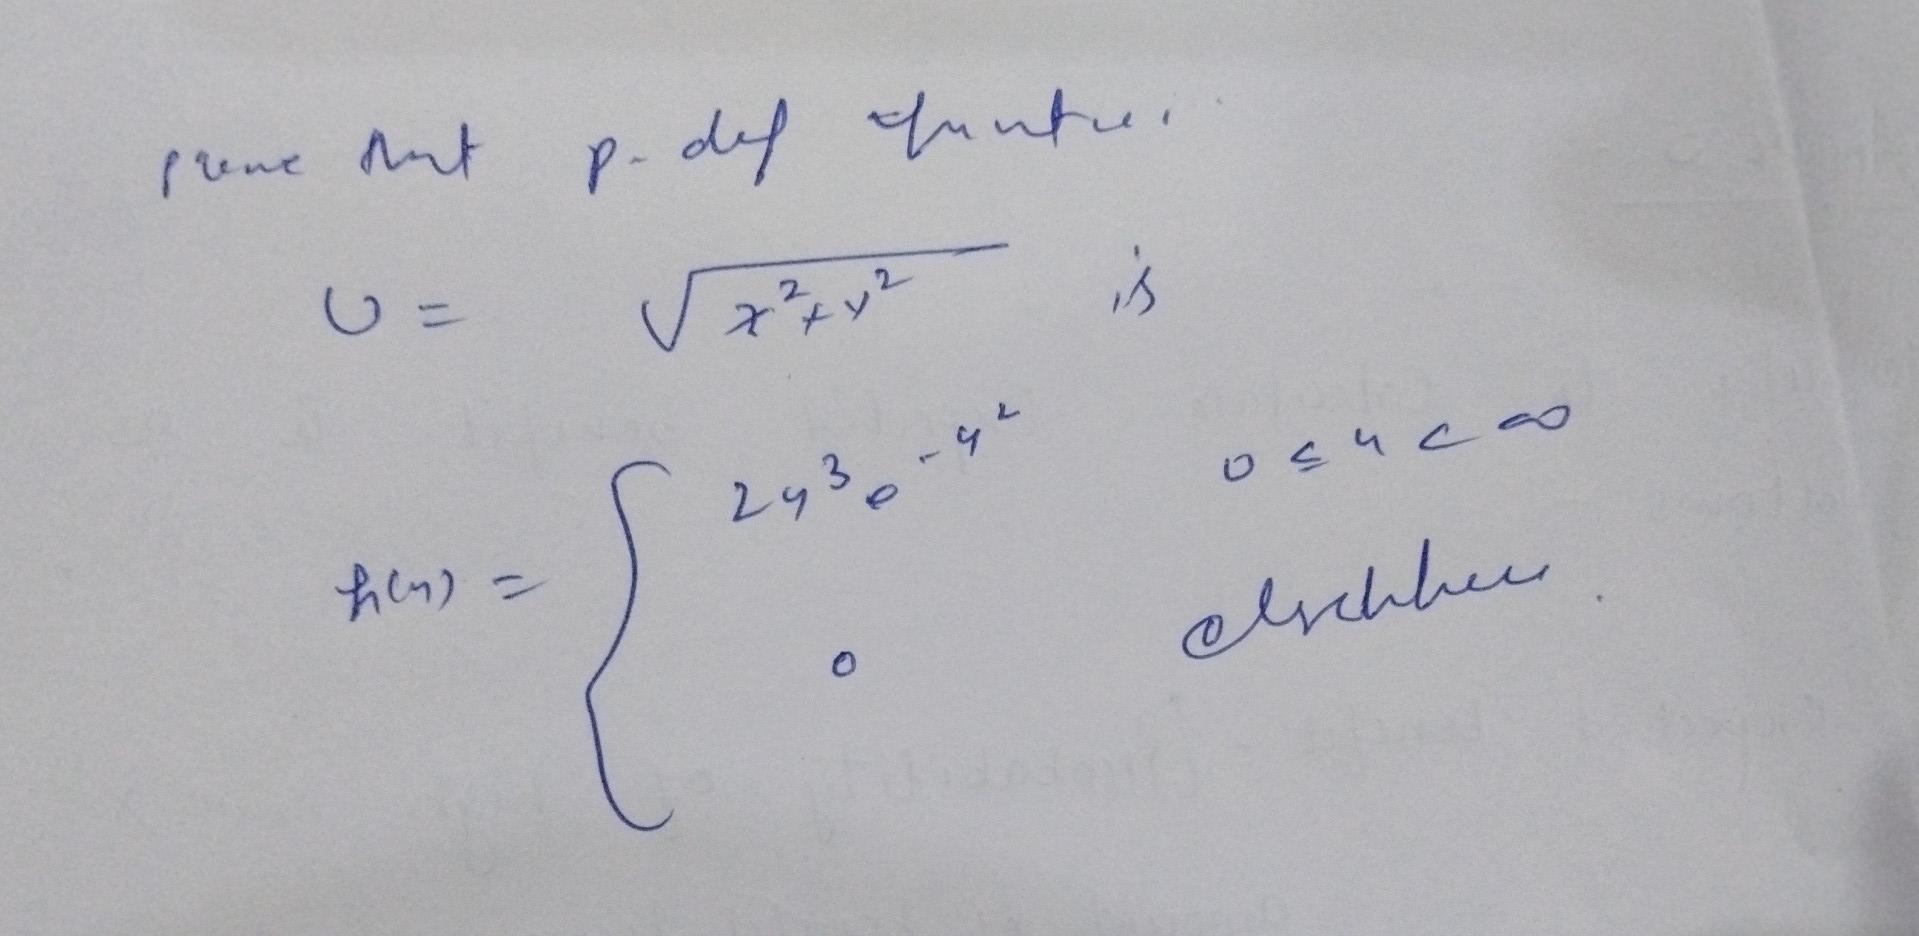 prove that p. def function.
U = √x²+y² is
h(u) = { 2u³e^-u² 0 ≤ u < ∞
0 elsewhere.